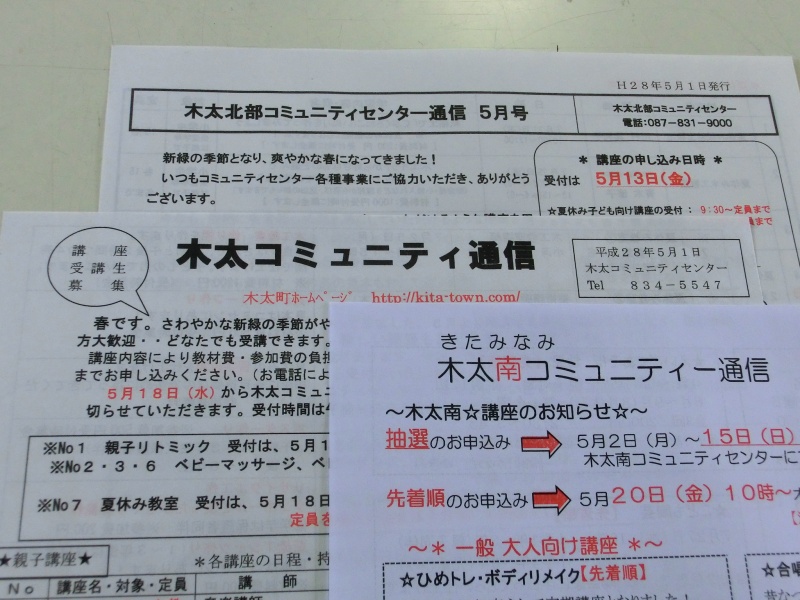 H28年5月1日発行
木太北部コミュニティセンター通信 5月号
木太北部コミュニティセンター
電話:087-831-9000
新緑の季節となり、爽やかな春になってきました！
いつもコミュニティセンター各種事業にご協力いただき、ありがとう
ございます。
＊ 講座の申し込み日時 ＊
受付は 5月13日(金)
☆夏休み子ども向け講座の受付： 9:30～定員まで
講座
受講生
募集
木太コミュニティ通信
平成28年5月1日
木太コミュニティセンター
Tel 834-5547
木太町ﾎｰﾑﾍﾟｰｼﾞ http://kita-town.com/
春です。さわやかな新緑の季節がや
方大歓迎・・どなたでも受講できます。
講座内容により教材費・参加費の負担
までお申し込みください。(お電話によ
5月18日（水）から木太コミュニ
切らせていただきます。受付時間は
※No1 親子リトミック 受付は、5月1
※No2・3・6 ベビーマッサージ、ベ
※No7 夏休み教室 受付は、5月18日
定員を
★親子講座★
＊各講座の日程・持
No 講座名・対象・定員 講師
きたみなみ
木太南コミュニティー通信
～木太南☆講座のお知らせ☆～
抽選のお申込み 5月2日（月）～15日（日）
木太南コミュニティセンターに
先着順のお申込み 5月20日（金）10時～
～＊ 一般 大人向け講座 ＊～
☆ひめトレ・ボディリメイク【先着順】
☆合唱